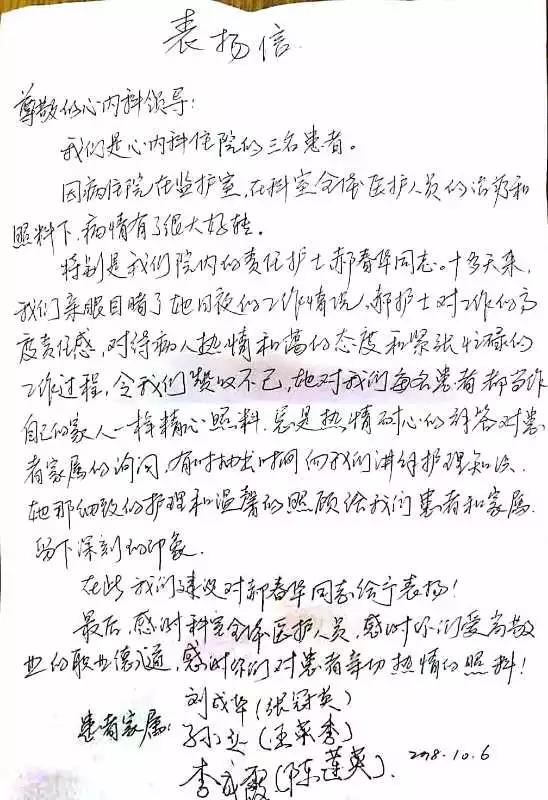 表扬信
尊敬的心内科领导：
我们是心内科住院的三名患者。
因病住院在监护室，在科室全体医护人员的治疗和
照料下，病情有了很大好转。
特别是我们院内的责任护士郝春华同志。十多天来，
我们亲眼目睹了她日夜的工作情况，郝护士对工作的高
度责任感，对待病人热情和蔼的态度和紧张忙碌的
工作过程，令我们赞叹不已，她对我们每名患者都当作
自己的家人一样精心照料，总是热情耐心的解答对患
者家属的询问，有时抽出时间向我们讲解护理知识，
她那细致的护理和温馨的照顾给我们患者和家属
留下深刻的印象。
在此，我们建议对郝春华同志给予表扬！
最后，感谢科室全体医护人员，感谢你们爱岗敬
业的职业德，感谢你们对患者亲切热情的照料！
刘成华（张冠英）
患者家属：孙（王英季）
李成霞（陈莲英）
2018.10.6